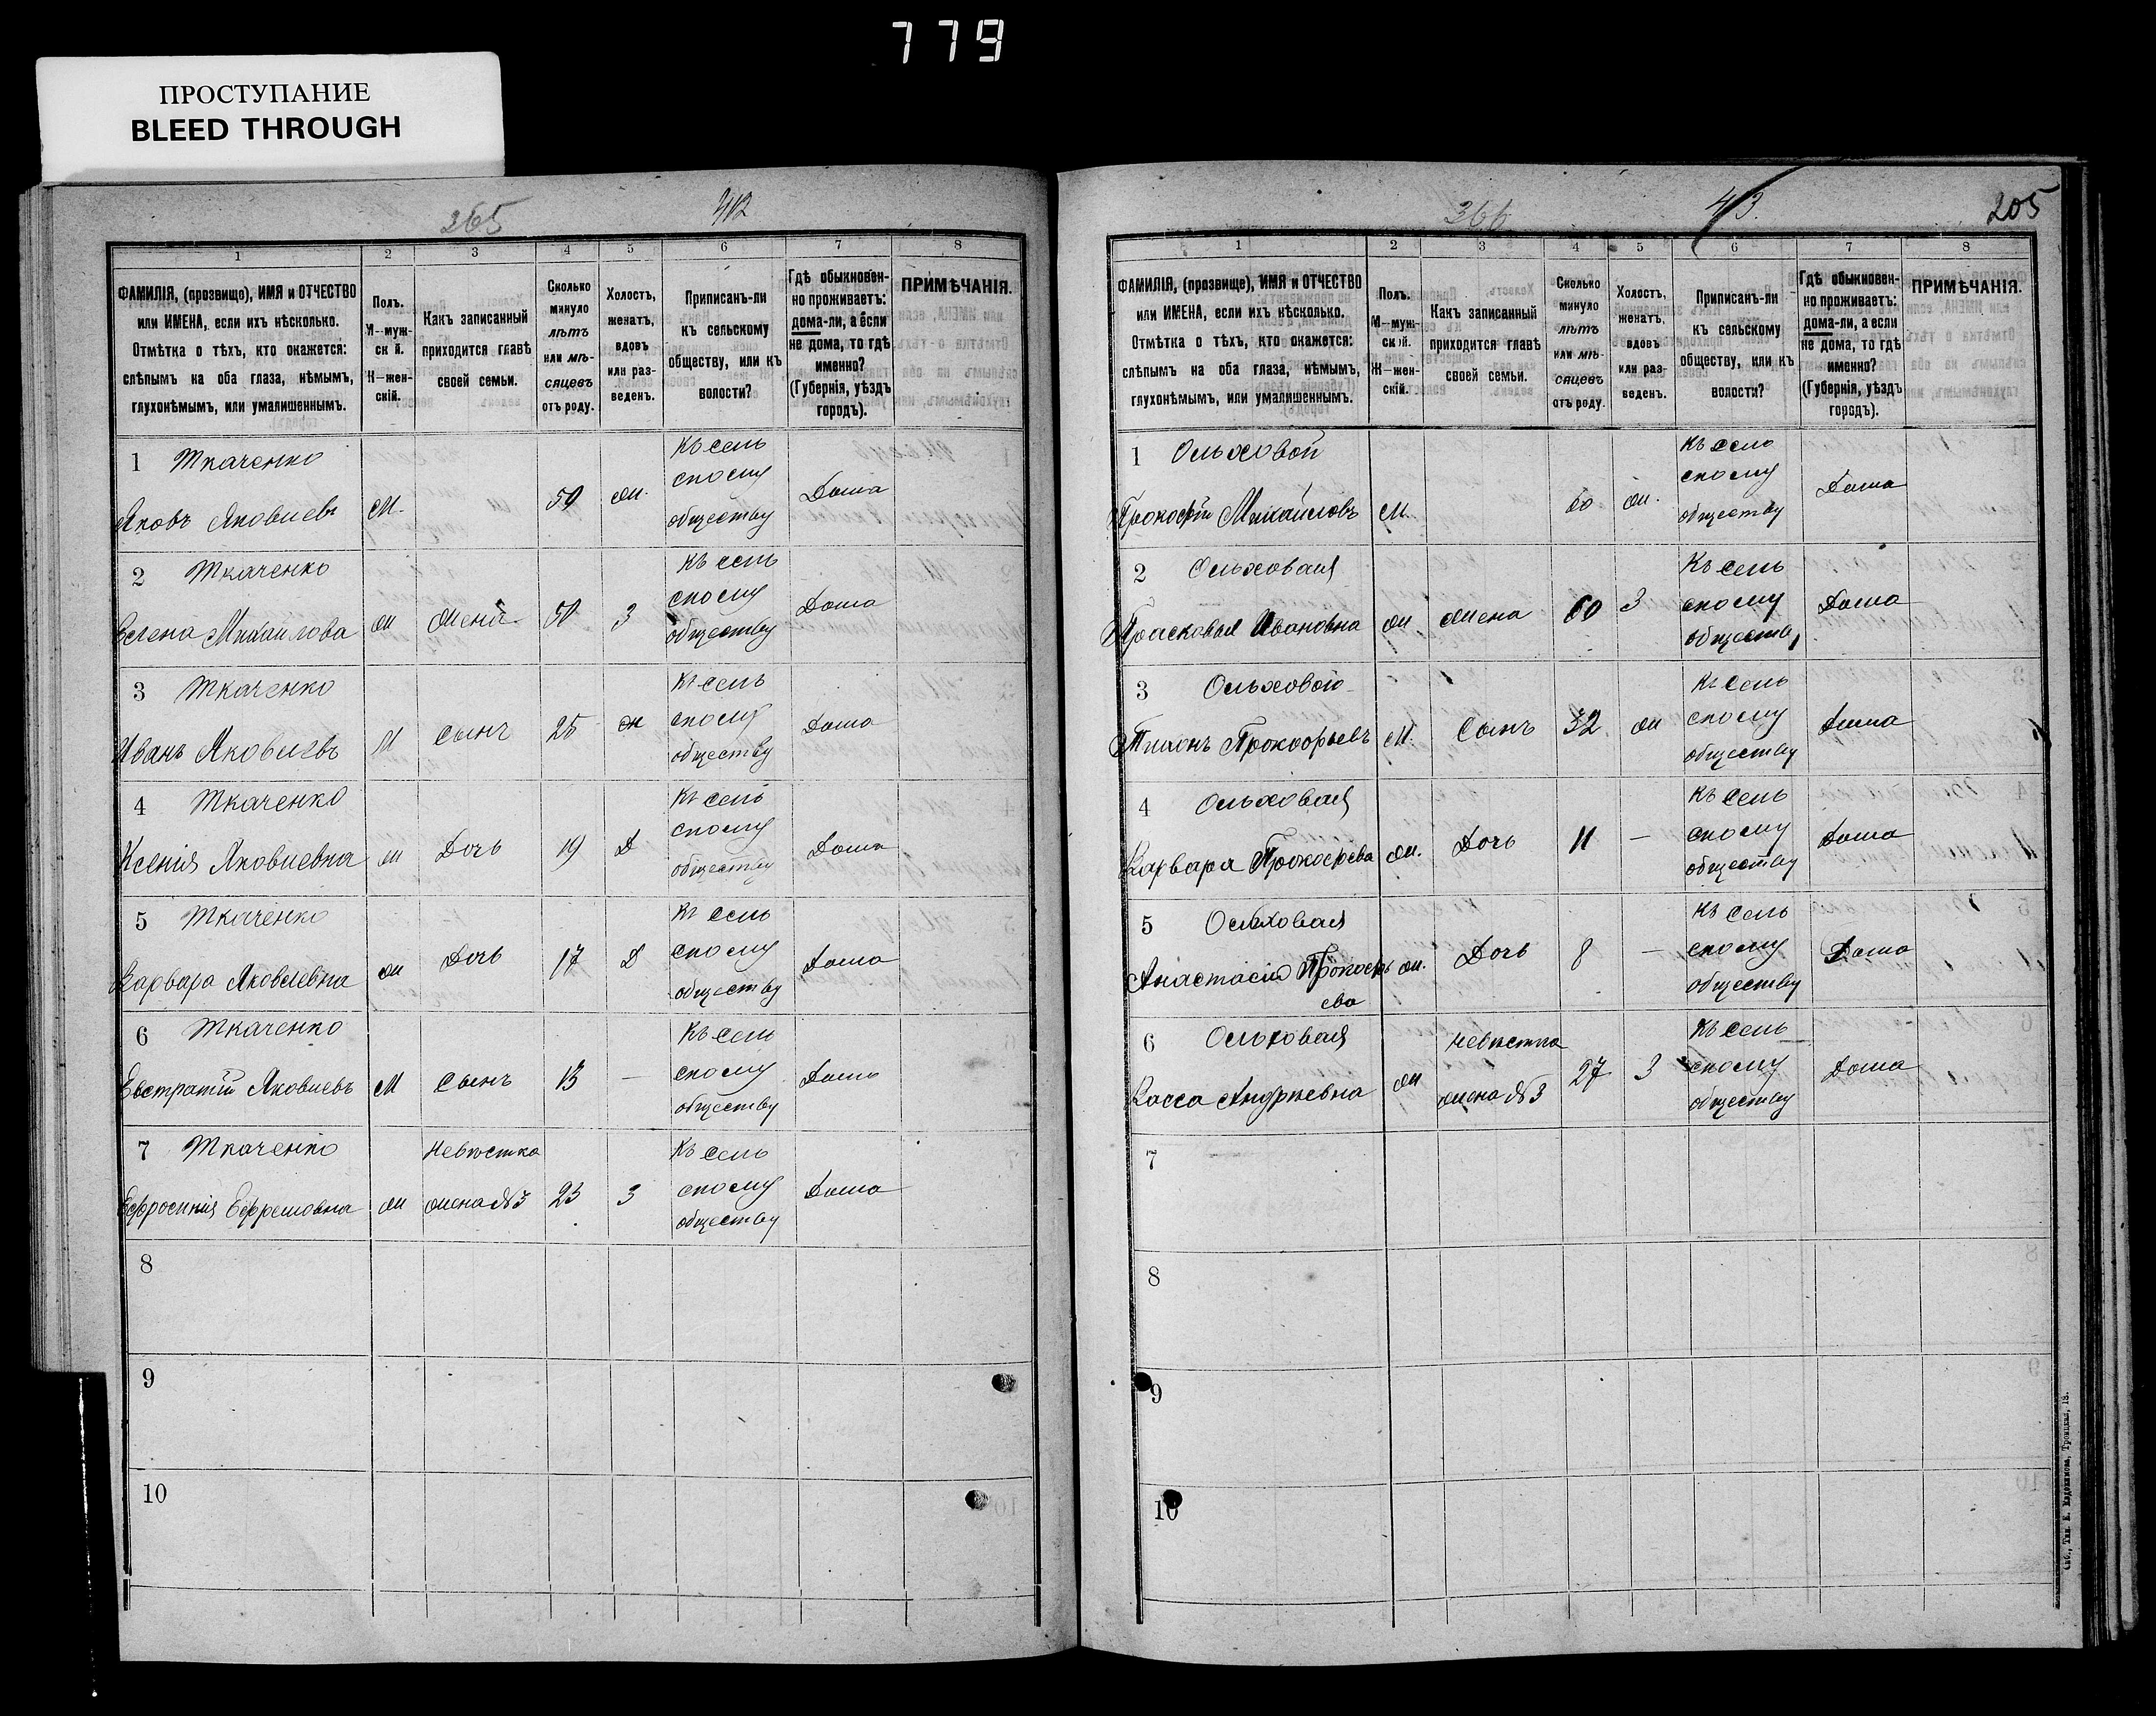 779
ПРОСТУПАНИЕ
BLEED THROUGH
265
412
1 2 3 4 5 6 7 8
ФАМИЛІЯ, (прозвище), ИМЯ и ОТЧЕСТВО
или ИМЕНА, если ихъ нѣсколько.
Отмѣтка о тѣхъ, кто окажется:
слѣпымъ на оба глаза, нѣмымъ,
глухонѣмымъ, или умалишеннымъ.
Полъ.
М—муж-
скій.
Ж—жен-
скій.
Какъ записанный
приходится главѣ
своей семьи.
Сколько
минуло
лѣтъ
или мѣ-
сяцевъ
отъ роду.
Холостъ,
женатъ,
вдовъ
или раз-
веденъ.
Приписанъ-ли
къ сельскому
обществу, или къ
волости?
Гдѣ обыкновен-
но проживаетъ:
дома-ли, а если
не дома, то гдѣ
именно?
(Губернія, уѣздъ
городъ).
ПРИМѢЧАНІЯ.
1 Ткаченко
Яковъ Яковлевъ М. 59 ж. Къ сель
скому
обществу Дома
2 Ткаченко
Елена Михайлова ж жена 50 З Къ сель
скому
обществу Дома
3 Ткаченко
Иванъ Яковлевъ М Сынъ 25 ж Къ сель
скому
обществу Дома
4 Ткаченко
Ксенія Яковлевна ж Дочь 19 Д Къ сель
скому
обществу Дома
5 Ткаченко
Варвара Яковлевна ж Дочь 17 Д Къ сель
скому
обществу Дома
6 Ткаченко
Евстратій Яковлевъ М Сынъ 13 — Къ сель
скому
обществу Дома
7 Ткаченко
Ефросинія Ефремовна ж Невѣстка
жена №3 23 З Къ сель
скому
обществу Дома
8
9
10
366
413.
205
1 2 3 4 5 6 7 8
ФАМИЛІЯ, (прозвище), ИМЯ и ОТЧЕСТВО
или ИМЕНА, если ихъ нѣсколько.
Отмѣтка о тѣхъ, кто окажется:
слѣпымъ на оба глаза, нѣмымъ,
глухонѣмымъ, или умалишеннымъ.
Полъ.
М—муж-
скій.
Ж—жен-
скій.
Какъ записанный
приходится главѣ
своей семьи.
Сколько
минуло
лѣтъ
или мѣ-
сяцевъ
отъ роду.
Холостъ,
женатъ,
вдовъ
или раз-
веденъ.
Приписанъ-ли
къ сельскому
обществу, или къ
волости?
Гдѣ обыкновен-
но проживаетъ:
дома-ли, а если
не дома, то гдѣ
именно?
(Губернія, уѣздъ
городъ).
ПРИМѢЧАНІЯ.
1 Ольховой
Прокофій Михайловъ М. 60 ж. Къ сель
скому
обществу Дома
2 Ольховая
Прасковья Ивановна ж жена 60 З Къ сель
скому
обществу Дома
3 Ольховой
Тихонъ Прокофьевъ М. Сынъ 32 ж Къ сель
скому
обществу Дома
4 Ольховая
Варвара Прокофьева ж. Дочь 11 — Къ сель
скому
обществу Дома
5 Ольховая
Анастасія Прокофь
ева ж. Дочь 8 — Къ сель
скому
обществу Дома
6 Ольховая
Васса Андреевна ж Невѣстка
жена №3 27 З Къ сель
скому
обществу Дома
7
8
9
10
Спб., Тип. Е. Евдокимова, Троицкая, 18.